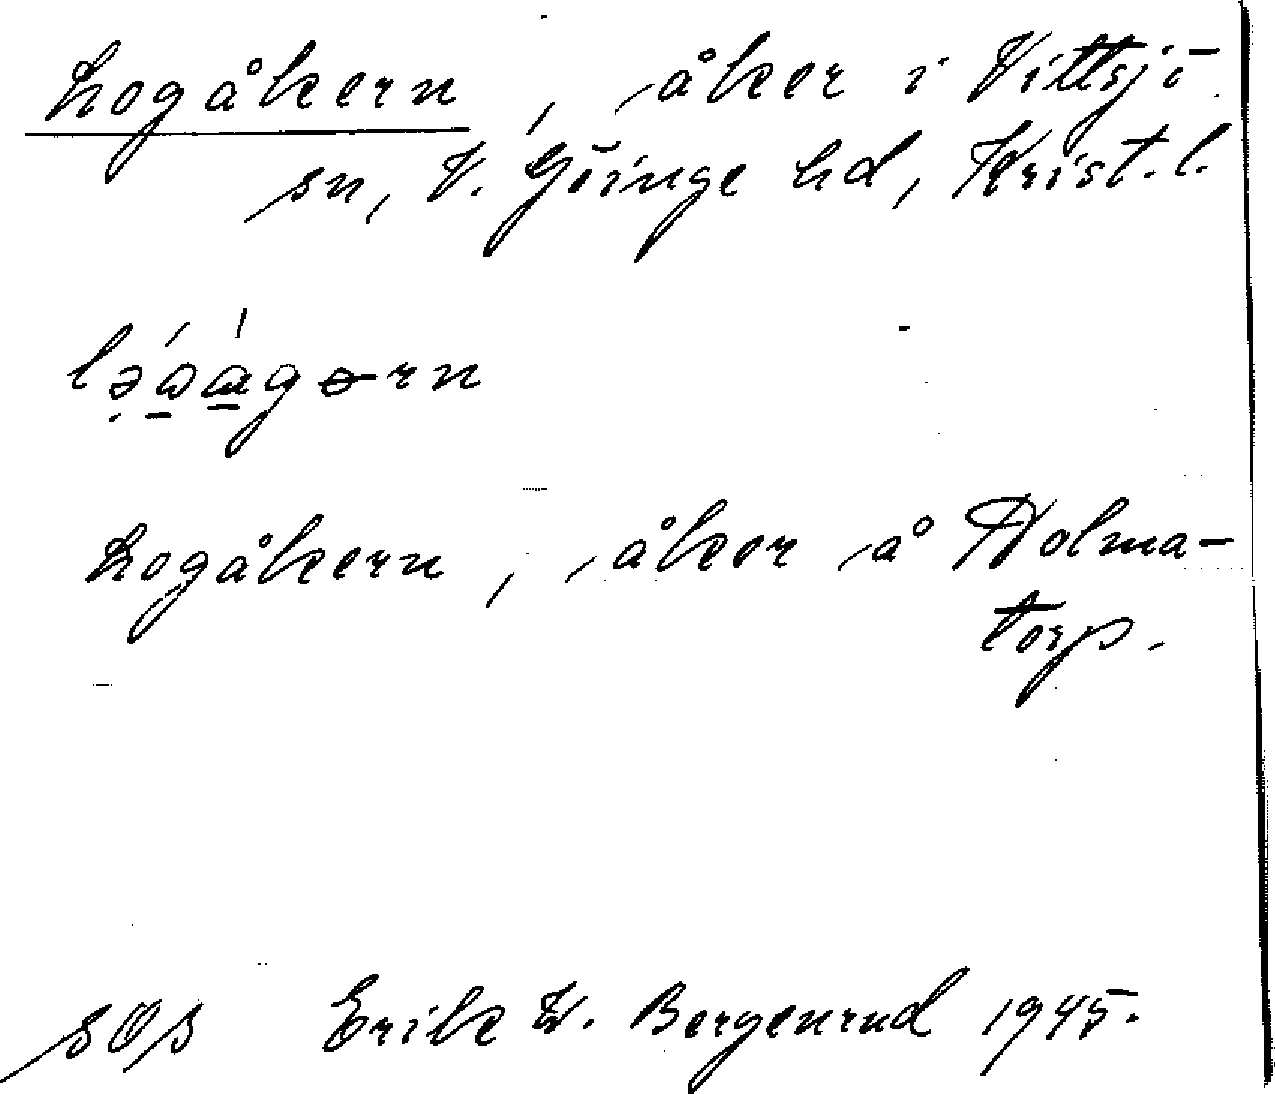 Logåkern, åker i Vittsjö
sn, V. Göinge hd, Krist. l.
Logåkern, åker å Holma-
torp.
sOs Erik W. Bergenrud 1945.